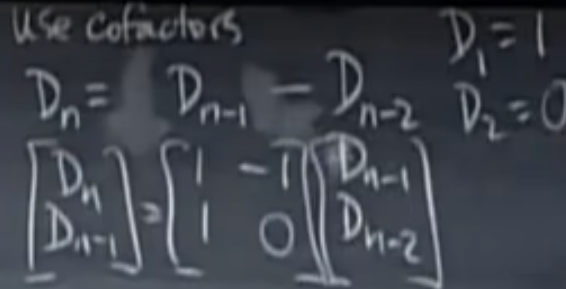 Use cofactors
D₁ = 1
Dₙ = Dₙ₋₁ − Dₙ₋₂
D₂ = 0
[Dₙ; Dₙ₋₁] = [1 −1; 1 0] [Dₙ₋₁; Dₙ₋₂]